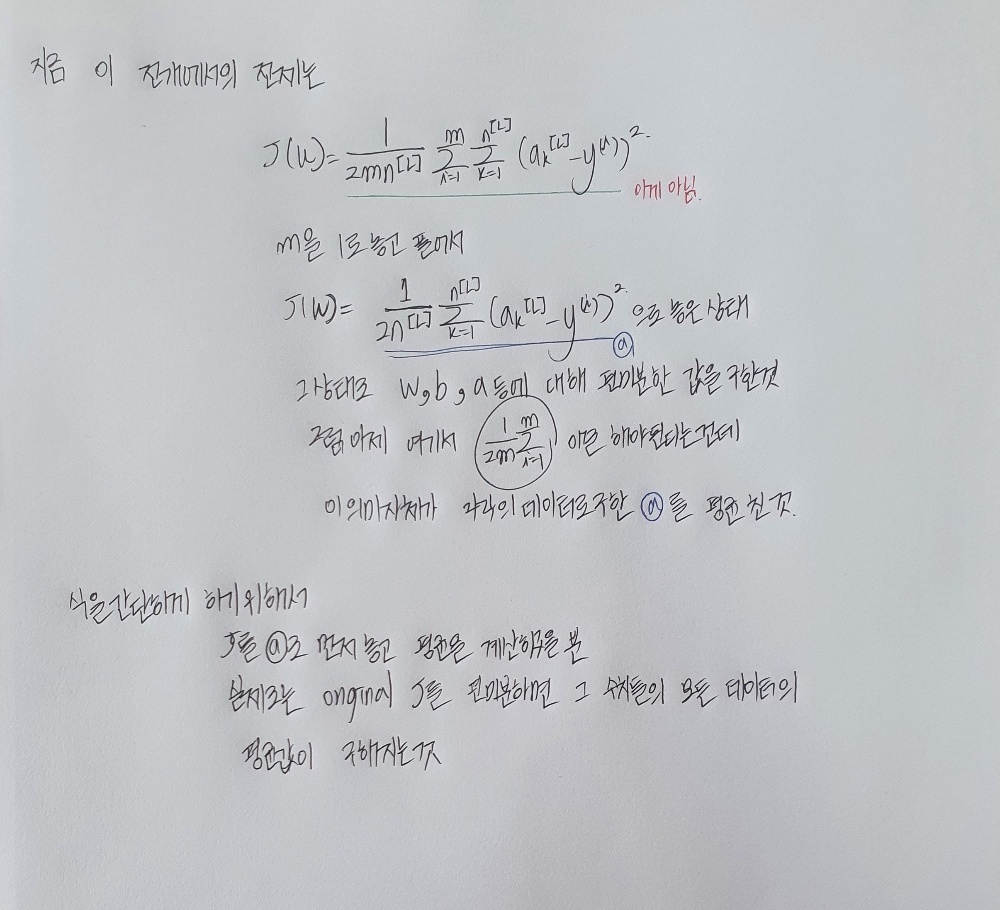 지금 이 전개에서의 전제는
J(W)= 1/2mn^[L] Σ_{i=1}^{m} Σ_{k=1}^{n^[L]} (a_k^[L] - y^(i))^2.
이게 아님.
m을 1로 놓고 풀어서
J(W)= 1/2n^[L] Σ_{k=1}^{n^[L]} (a_k^[L] - y^(i))^2 으로 놓은 상태
ⓐ
그상태로 W, b, a 등에 대해 편미분한 값을 구한것
그럼 이제 여기서 1/2m Σ_{i=1}^{m} 이만 해야된다는건데
이 의미자체가 각각의 데이터로 구한 ⓐ를 평균 친 것.
식을 간단하게 하기 위해서
J를 ⓐ로 먼저 놓고 평균을 계산했을 뿐
실제로는 original J를 편미분하면 그 수치들의 모든 데이터의
평균값이 구해지는 것